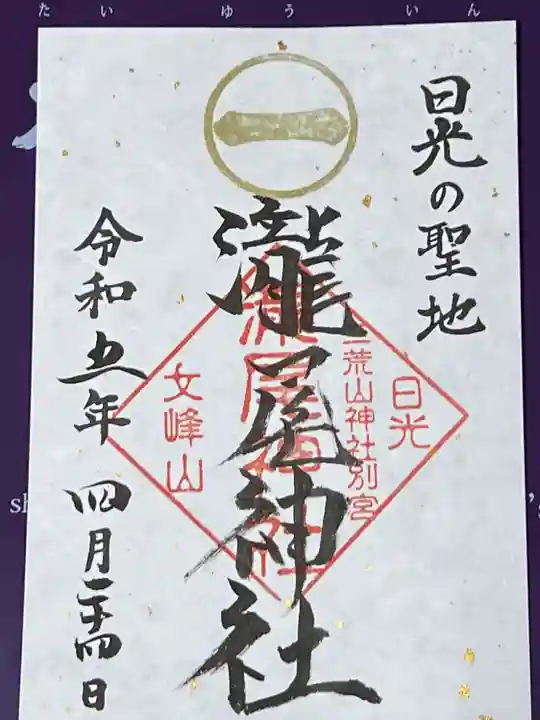 たいゆういん
日光の聖地
一
瀧尾神社
日光
二荒山神社別宮
瀧尾神社
女峰山
令和五年 四月二十四日
sh
's